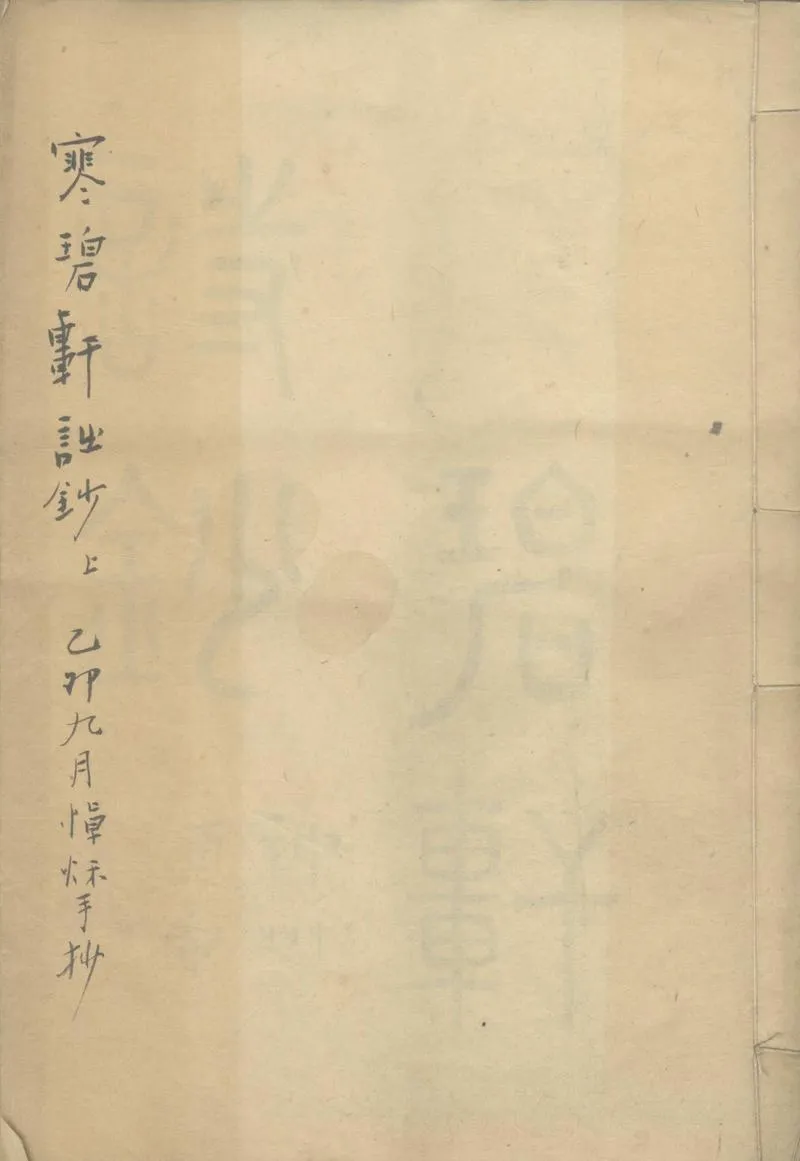 寒碧軒詩鈔上　乙卯九月悼秌手抄